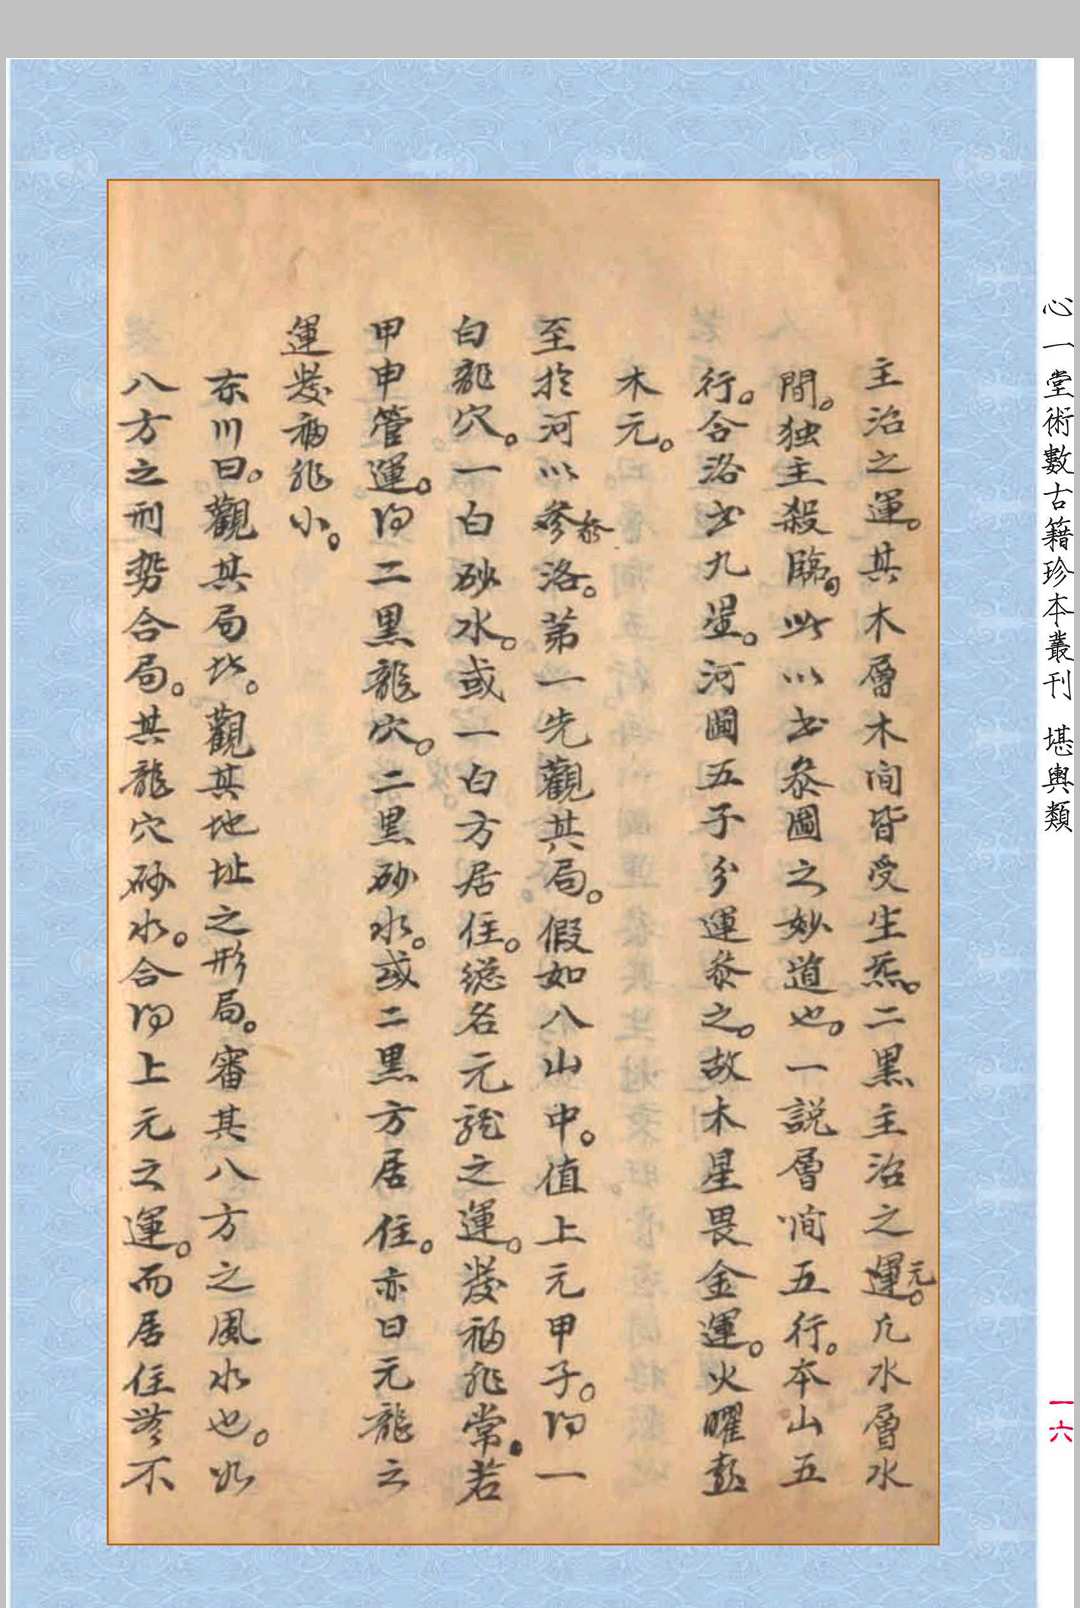 主治之運。其木層木间皆受生炁。二黑主治之運元。凢水層水
間。独主殺臨。此以书叅圖之妙道也。一説層间五行。本山五
行。合洛书九星。河圖五子分運叅之。故木星畏金運。火曜
木元。
至扵河以參叅洛。苐一先觀其局。假如八山中。值上元甲子。得一
白龍穴。一白砂水。或一白方居住。總名元龍之運。發福非常。若
甲申管運。得二黑龍穴。二黑砂水。或二黑方居住。亦曰元龍之
運發福非小。
东川曰。觀其局北。觀其地址之形局。審其八方之風水也。如
八方之刑势合局。其龍穴砂水。合得上元之運。而居住无不
心一堂術數古籍珍本叢刊 堪輿類
一六